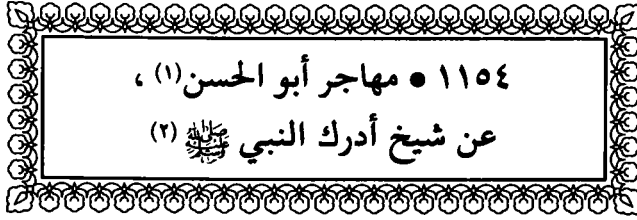 ١١٥٤ • مهاجر أبو الحسن(١) ،
عن شيخ أدرك النبي ﷺ (٢)